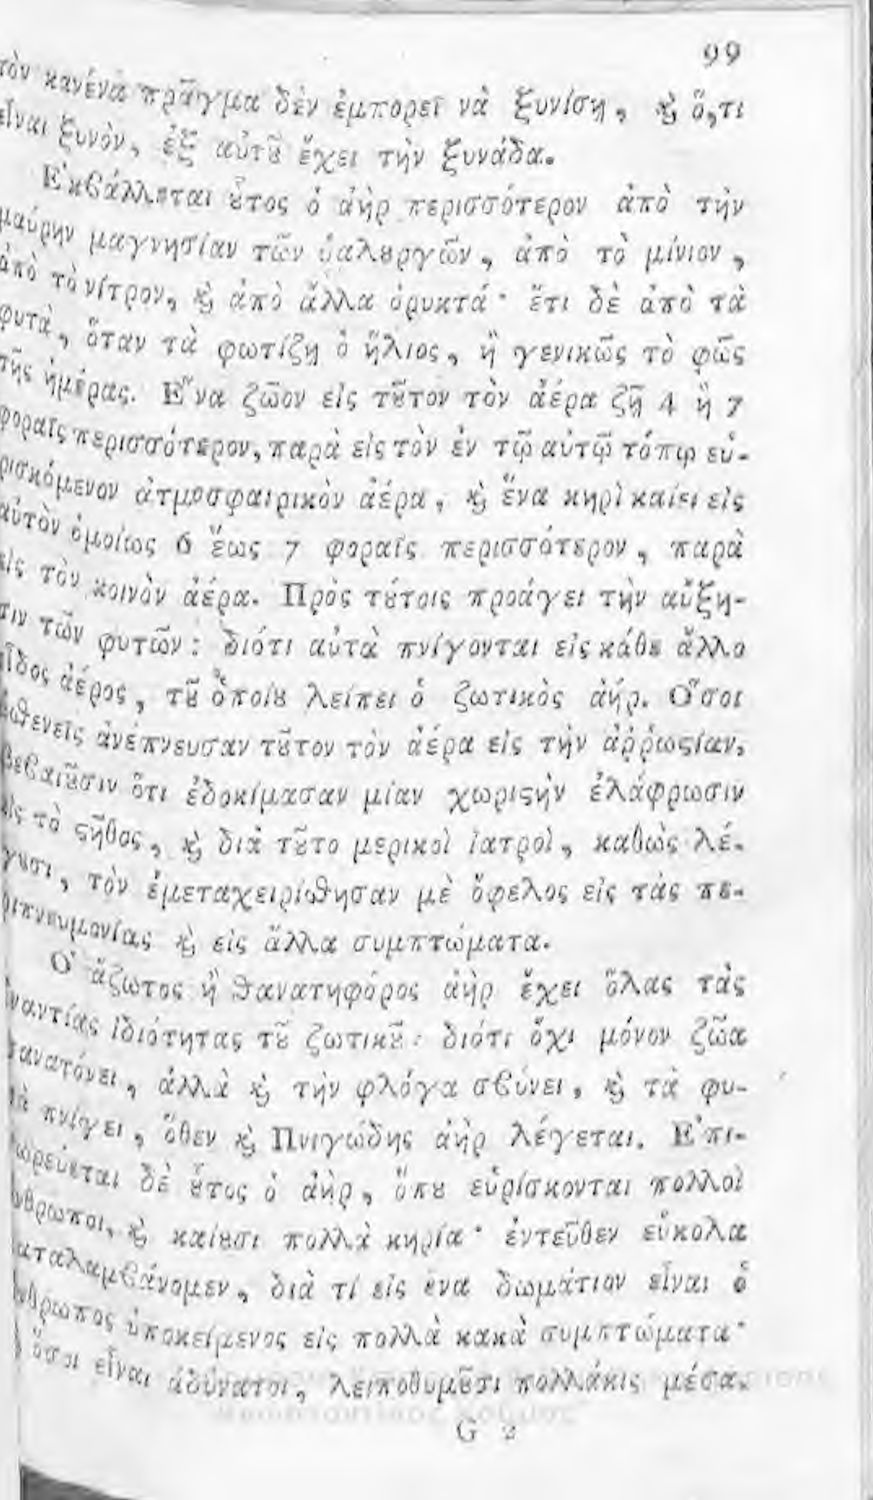 99
τὸν κανένα πρᾶγμα δὲν ἐμπορεῖ νὰ ξυνίσῃ, ϗ ὅ,τι
εἶναι ξυνὸν, ἐξ αὐτȣ͂ ἔχει τὴν ξυνάδα.
Ἐκβάλλεται ȣ̓͂τος ὁ ἀὴρ περισσότερον ἀπὸ τὴν
μαύρην μαγνησίαν τῶν ὑαλȣργῶν, ἀπὸ τὸ μίνιον,
ἀπὸ τὸ νίτρον, ϗ ἀπὸ ἄλλα ὀρυκτά· ἔτι δὲ ἀπὸ τὰ
φυτὰ, ὅταν τὰ φωτίζῃ ὁ ἥλιος, ἢ γενικῶς τὸ φῶς
τῆς ἡμέρας. Ἕνα ζῶον εἰς τȣ͂τον τὸν ἀέρα ζῇ 4 ἢ 7
φοραῖς περισσότερον, παρὰ εἰς τὸν ἐν τῷ αὐτῷ τόπῳ εὑ-
ρισκόμενον ἀτμοσφαιρικὸν ἀέρα, ϗ ἕνα κηρὶ καίει εἰς
αὐτὸν ὁμοίως 6 ἕως 7 φοραῖς περισσότερον, παρὰ
εἰς τὸν κοινὸν ἀέρα. Πρὸς τȣ́τοις προάγει τὴν αὔξη-
σιν τῶν φυτῶν: διότι αὐτὰ πνίγονται εἰς κάθε ἄλλο
εἶδος ἀέρος, τȣ͂ ὁποίȣ λείπει ὁ ζωτικὸς ἀήρ. Ὅσοι
ἀσθενεῖς ἀνέπνευσαν τȣ͂τον τὸν ἀέρα εἰς τὴν ἀῤῥωςίαν,
βεβαιȣ͂σιν ὅτι ἐδοκίμασαν μίαν χωριςὴν ἐλάφρωσιν
εἰς τὸ ςῆθος, ϗ διὰ τȣ͂το μερικοὶ ἰατροὶ, καθὼς λέ-
γȣσι, τὸν ἐμεταχειρίσθησαν μὲ ὄφελος εἰς τὰς πε-
ριπνευμονίας ϗ εἰς ἄλλα συμπτώματα.
Ὁ ἄζωτος ἢ θανατηφόρος ἀὴρ ἔχει ὅλας τὰς
ἐναντίας ἰδιότητας τȣ͂ ζωτικȣ͂· διότι ὄχι μόνον ζῶα
θανατόνει, ἀλλὰ ϗ τὴν φλόγα σβύνει, ϗ τὰ φυ-
τὰ πνίγει, ὅθεν ϗ Πνιγώδης ἀὴρ λέγεται. Ἐπι-
σωρεύεται δὲ ȣ̓͂τος ὁ ἀὴρ, ὅπȣ εὑρίσκονται πολλοὶ
ἄνθρωποι, ϗ καίȣσι πολλὰ κηρία· ἐντεῦθεν εὔκολα
καταλαμβάνομεν, διὰ τί εἰς ἕνα δωμάτιον εἶναι ὁ
ἄνθρωπος ὑποκείμενος εἰς πολλὰ κακὰ συμπτώματα·
ὅσοι εἶναι ἀδύνατοι, λειποθυμȣ͂σι πολλάκις μέσα.
G 2